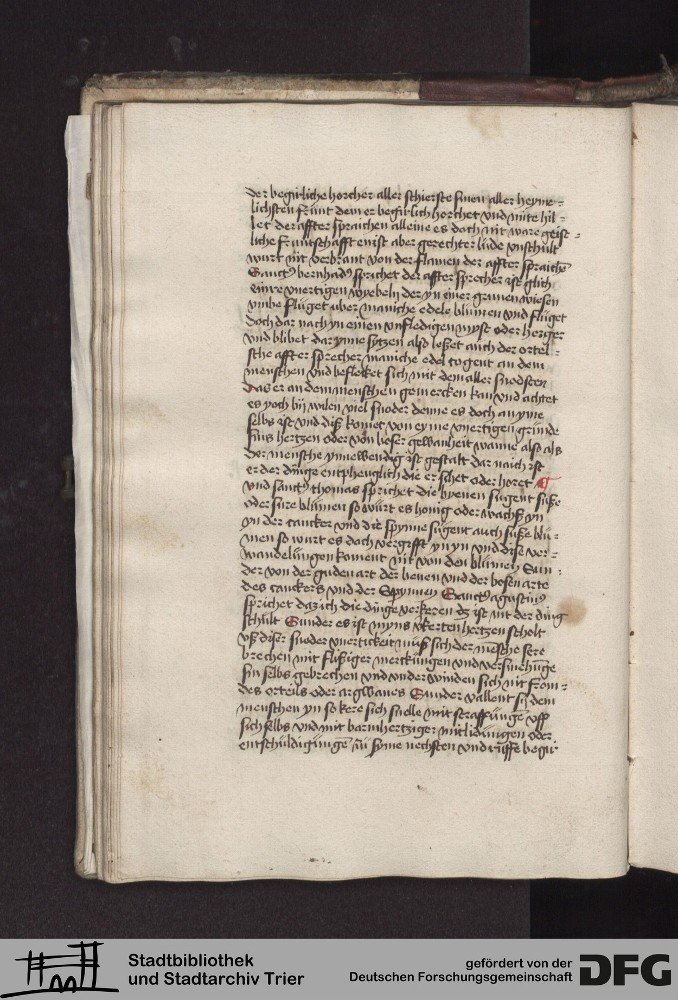 der begirliche horcher aller schierste sinen aller heyme-
lichsten frunt dem er begirlich horchet vnd mite hil-
let der affter spraichen alleine es doch nit ware geist-
liche fruntschafft enist aber gerechter lude vnschult
wurt nit verbrant von der flamen der affter spraichē
Sanctꝰ bernhadꝰ sprichet der affter sprecher ist glich
eime vnertigen wyebeln der yn einer grunen wiesen
vmbe fluget uber maniche edele blumen vnd fluget
doch dar nach yn einen vnfledigen myst oder horger
vnd blibet dar ynne sytzen also loßet auch der ortel-
sche affter sprecher maniche edel togent an dem
menschen vnd beflecket sich mit dem aller snodsten
Das er an dem menschen gemercken kan vnd achtet
es yoch bij wilen viel snoder denne es doch an yme
selbs ist vnd diß komet von eyme vnertigen grunde
sins hertzen oder von boser gewanheit wanne also als
der mensche ynnewendig ist gestalt dar naich ist
er der dinge entphenglich die er sehet oder horet
vnd sanctꝰ thomas sprichet die byenen sugent suße
oder sure blumen so wurt es honig oder wachß yn
yn der cancker vnd die spynne sugent auch suße blu-
men so wurt es doch vergifft yn yn vnd dise ver-
wandelungen koment nit von den blumen Sun-
der von der guden art der benen vnd der bosen arte
des canckers vnd der Spynnen Sanctꝰ agustinꝰ
sprichet daz ich die dinge verkeren dz ist nit der ding
schult Sunder es ist myns vkerten hertzen scholt
vß diser snoder vnertickeit muß sich der mēsche sere
brechen mit flißiger merckungen vnd versmehūge
sin selbs gebrechen vnd vnder winden sich nit from-
des orteils oder argwanes Sunder vallent sij dem
menschen yn so kere sich snelle mit straffunge vff
sich selbs vnd mit barmhertziger mitlidungen oder
entschuldigungē zu syme nechsten vnd ruffe begir
Stadtbibliothek
und Stadtarchiv Trier
gefördert von der
Deutschen Forschungsgemeinschaft
DFG